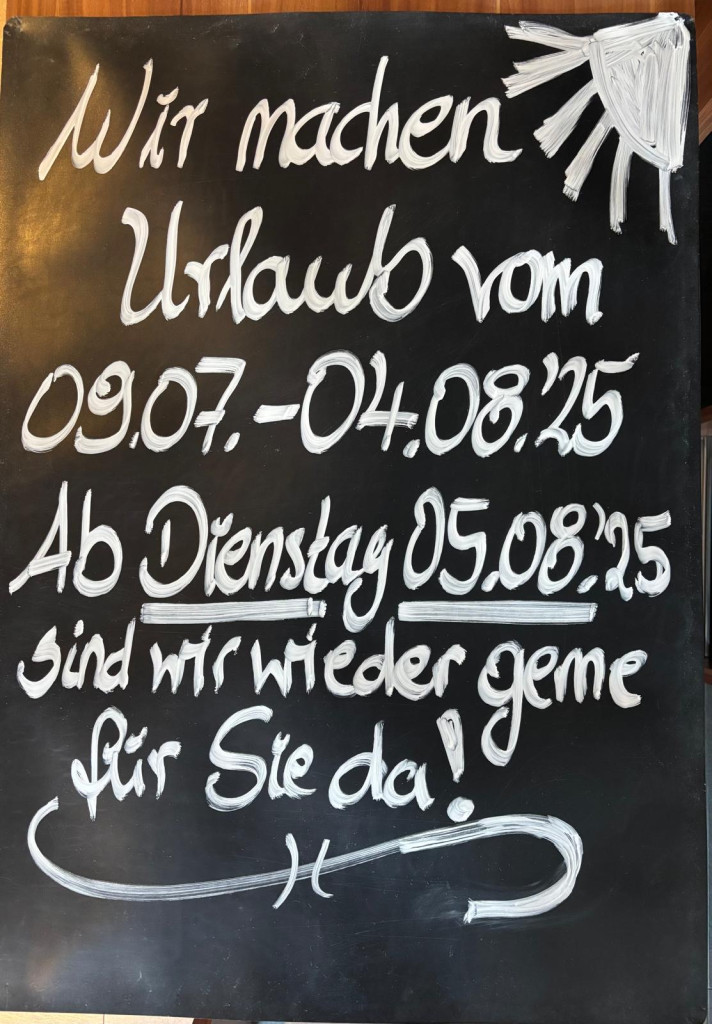 Wir machen
Urlaub vom
09.07.-04.08.'25
Ab Dienstag 05.08.'25
sind wir wieder gerne
für Sie da!